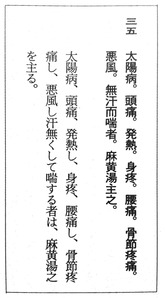 三五 太陽病。頭痛。発熱。身疼。腰痛。骨節疼痛。
悪風。無汗而喘者。麻黄湯主之。
太陽病、頭痛、発熱し、身疼、腰痛し、骨節疼
痛し、悪風し汗無くして喘する者は、麻黄湯之
を主る。